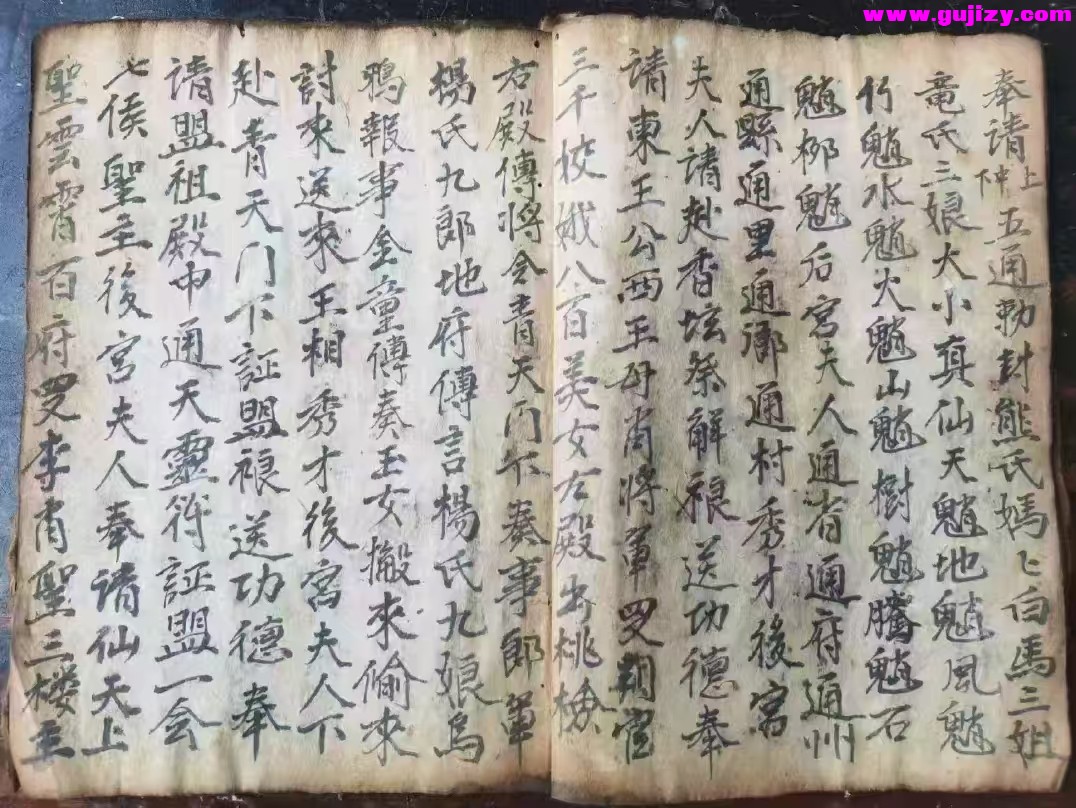 www.gujizy.com
奉请上中下五通勅封熊氏媽匕白馬三姐
竜氏三娘大小真仙天魈地魈風魈
竹魈水魈火魈山魈樹魈騰魈石
魈柳魈后宮夫人通省通府通州
通縣通里通鄉通村秀才後宮
夫人請赴香坛祭解禳送功德奉
請東王公西王母肖將軍
三千校娥八百美女右殿出桃
右殿傳將令青天门下奏事郎軍
楊氏九郎地府傳言楊氏九娘烏
鴉報事金童傳奏玉女搬來偷來
討來送來王相秀才後宮夫人下
赴青天门下証盟禳送功德奉
請盟祖殿中通天靈符証盟一会
七侯聖主後宮夫人奉請仙天上
聖雲霄百府李肖聖三楼主